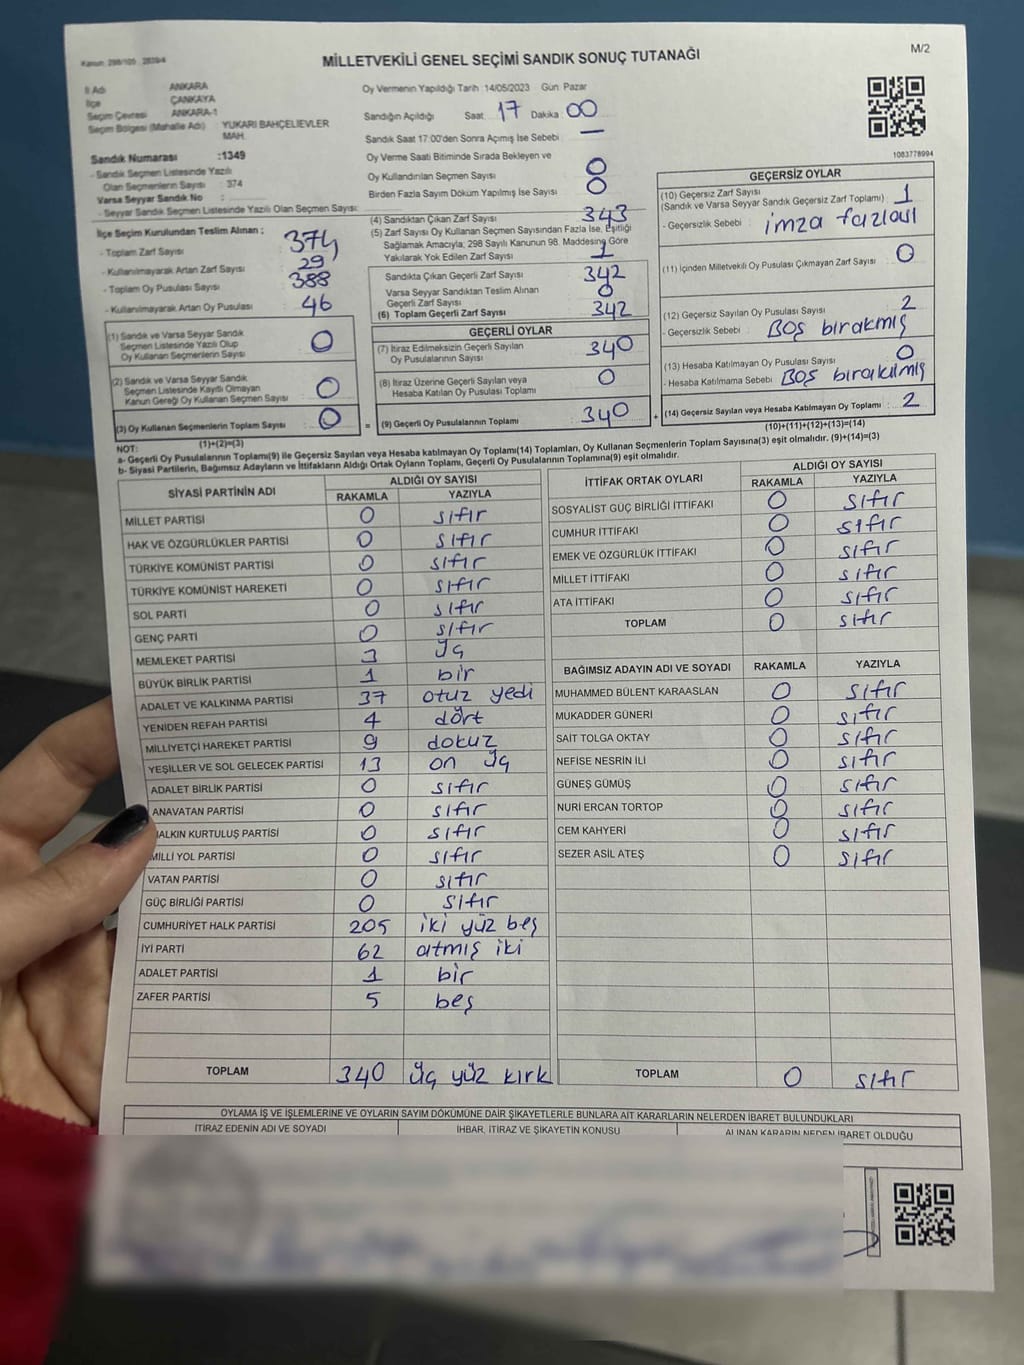 Kanun: 298/105 2839/4
M/2
MİLLETVEKİLİ GENEL SEÇİMİ SANDIK SONUÇ TUTANAĞI
İl Adı ANKARA
İlçe ÇANKAYA
Seçim Çevresi ANKARA-1
Seçim Bölgesi (Mahalle Adı) : YUKARI BAHÇELİEVLER MAH.
Sandık Numarası :1349
- Sandık Seçmen Listesinde Yazılı
Olan Seçmenlerin Sayısı : 374
Varsa Seyyar Sandık No :
- Seyyar Sandık Seçmen Listesinde Yazılı Olan Seçmen Sayısı:
İlçe Seçim Kurulundan Teslim Alınan ;
- Toplam Zarf Sayısı : 374
- Kullanılmayarak Artan Zarf Sayısı : 29
- Toplam Oy Pusulası Sayısı : 388
- Kullanılmayarak Artan Oy Pusulası : 46
(1) Sandık ve Varsa Seyyar Sandık
Seçmen Listesinde Yazılı Olup
Oy Kullanan Seçmenlerin Sayısı : 0
(2) Sandık ve Varsa Seyyar Sandık
Seçmen Listesinde Kayıtlı Olmayan
Kanun Gereği Oy Kullanan Seçmen Sayısı : 0
(3) Oy Kullanan Seçmenlerin Toplam Sayısı : 0
(1)+(2)=(3)
Oy Vermenin Yapıldığı Tarih 14/05/2023 Gün Pazar
Sandığın Açıldığı Saat: 17 Dakika 00
Sandık Saat 17:00'den Sonra Açımış İse Sebebi : —
Oy Verme Saati Bitiminde Sırada Bekleyen ve
Oy Kullandırılan Seçmen Sayısı : 0
Birden Fazla Sayım Döküm Yapılmış İse Sayısı : 0
(4) Sandıktan Çıkan Zarf Sayısı : 343
(5) Zarf Sayısı Oy Kullanan Seçmen Sayısından Fazla İse, Eşitliği
Sağlamak Amacıyla, 298 Sayılı Kanunun 98. Maddesine Göre
Yakılarak Yok Edilen Zarf Sayısı : 1
Sandıkta Çıkan Geçerli Zarf Sayısı : 342
Varsa Seyyar Sandıktan Teslim Alınan
Geçerli Zarf Sayısı : 0
(6) Toplam Geçerli Zarf Sayısı : 342
GEÇERLİ OYLAR
(7) İtiraz Edilmeksizin Geçerli Sayılan
Oy Pusulalarının Sayısı : 340
(8) İtiraz Üzerine Geçerli Sayılan veya
Hesaba Katılan Oy Pusulası Toplamı : 0
= (9) Geçerli Oy Pusulalarının Toplamı : 340 +
1083778994
GEÇERSİZ OYLAR
(10) Geçersiz Zarf Sayısı
(Sandık ve Varsa Seyyar Sandık Geçersiz Zarf Toplamı) : 1
- Geçersizlik Sebebi : imza fazlası
(11) İçinden Milletvekili Oy Pusulası Çıkmayan Zarf Sayısı : 0
(12) Geçersiz Sayılan Oy Pusulası Sayısı : 2
- Geçersizlik Sebebi : Boş bırakmış
(13) Hesaba Katılmayan Oy Pusulası Sayısı : 0
- Hesaba Katılmama Sebebi : Boş bırakılmış
(14) Geçersiz Sayılan veya Hesaba Katılmayan Oy Toplamı : 2
(10)+(11)+(12)+(13)=(14)
NOT:
a- Geçerli Oy Pusulalarının Toplamı(9) ile Geçersiz Sayılan veya Hesaba katılmayan Oy Toplamı(14) Toplamları, Oy Kullanan Seçmenlerin Toplam Sayısına(3) eşit olmalıdır. (9)+(14)=(3)
b- Siyasi Partilerin, Bağımsız Adayların ve İttifakların Aldığı Ortak Oyların Toplamı, Geçerli Oy Pusulalarının Toplamına(9) eşit olmalıdır.
SİYASİ PARTİNİN ADI ALDIĞI OY SAYISI
RAKAMLA YAZIYLA
MİLLET PARTİSİ 0 sıfır
HAK VE ÖZGÜRLÜKLER PARTİSİ 0 sıfır
TÜRKİYE KOMÜNİST PARTİSİ 0 sıfır
TÜRKİYE KOMÜNİST HAREKETİ 0 sıfır
SOL PARTİ 0 sıfır
GENÇ PARTİ 0 sıfır
MEMLEKET PARTİSİ 3 üç
BÜYÜK BİRLİK PARTİSİ 1 bir
ADALET VE KALKINMA PARTİSİ 37 otuz yedi
YENİDEN REFAH PARTİSİ 4 dört
MİLLİYETÇİ HAREKET PARTİSİ 9 dokuz
YEŞİLLER VE SOL GELECEK PARTİSİ 13 on üç
ADALET BİRLİK PARTİSİ 0 sıfır
ANAVATAN PARTİSİ 0 sıfır
HALKIN KURTULUŞ PARTİSİ 0 sıfır
MİLLİ YOL PARTİSİ 0 sıfır
VATAN PARTİSİ 0 sıfır
GÜÇ BİRLİĞİ PARTİSİ 0 sıfır
CUMHURİYET HALK PARTİSİ 205 iki yüz beş
İYİ PARTİ 62 atmış iki
ADALET PARTİSİ 1 bir
ZAFER PARTİSİ 5 beş
TOPLAM 340 üç yüz kırk
İTTİFAK ORTAK OYLARI ALDIĞI OY SAYISI
RAKAMLA YAZIYLA
SOSYALİST GÜÇ BİRLİĞİ İTTİFAKI 0 sıfır
CUMHUR İTTİFAKI 0 sıfır
EMEK VE ÖZGÜRLÜK İTTİFAKI 0 sıfır
MİLLET İTTİFAKI 0 sıfır
ATA İTTİFAKI 0 sıfır
TOPLAM 0 sıfır
BAĞIMSIZ ADAYIN ADI VE SOYADI RAKAMLA YAZIYLA
MUHAMMED BÜLENT KARAASLAN 0 sıfır
MUKADDER GÜNERİ 0 sıfır
SAİT TOLGA OKTAY 0 sıfır
NEFİSE NESRİN İLİ 0 sıfır
GÜNEŞ GÜMÜŞ 0 sıfır
NURİ ERCAN TORTOP 0 sıfır
CEM KAHYERİ 0 sıfır
SEZER ASİL ATEŞ 0 sıfır
TOPLAM 0 sıfır
OYLAMA İŞ VE İŞLEMLERİNE VE OYLARIN SAYIM DÖKÜMÜNE DAİR ŞİKAYETLERLE BUNLARA AİT KARARLARIN NELERDEN İBARET BULUNDUKLARI
İTİRAZ EDENİN ADI VE SOYADI İHBAR, İTİRAZ VE ŞİKAYETİN KONUSU ALINAN KARARIN NEDEN İBARET OLDUĞU